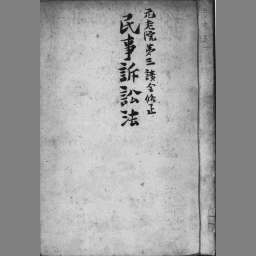 元老院第三読会修正
民事訴訟法